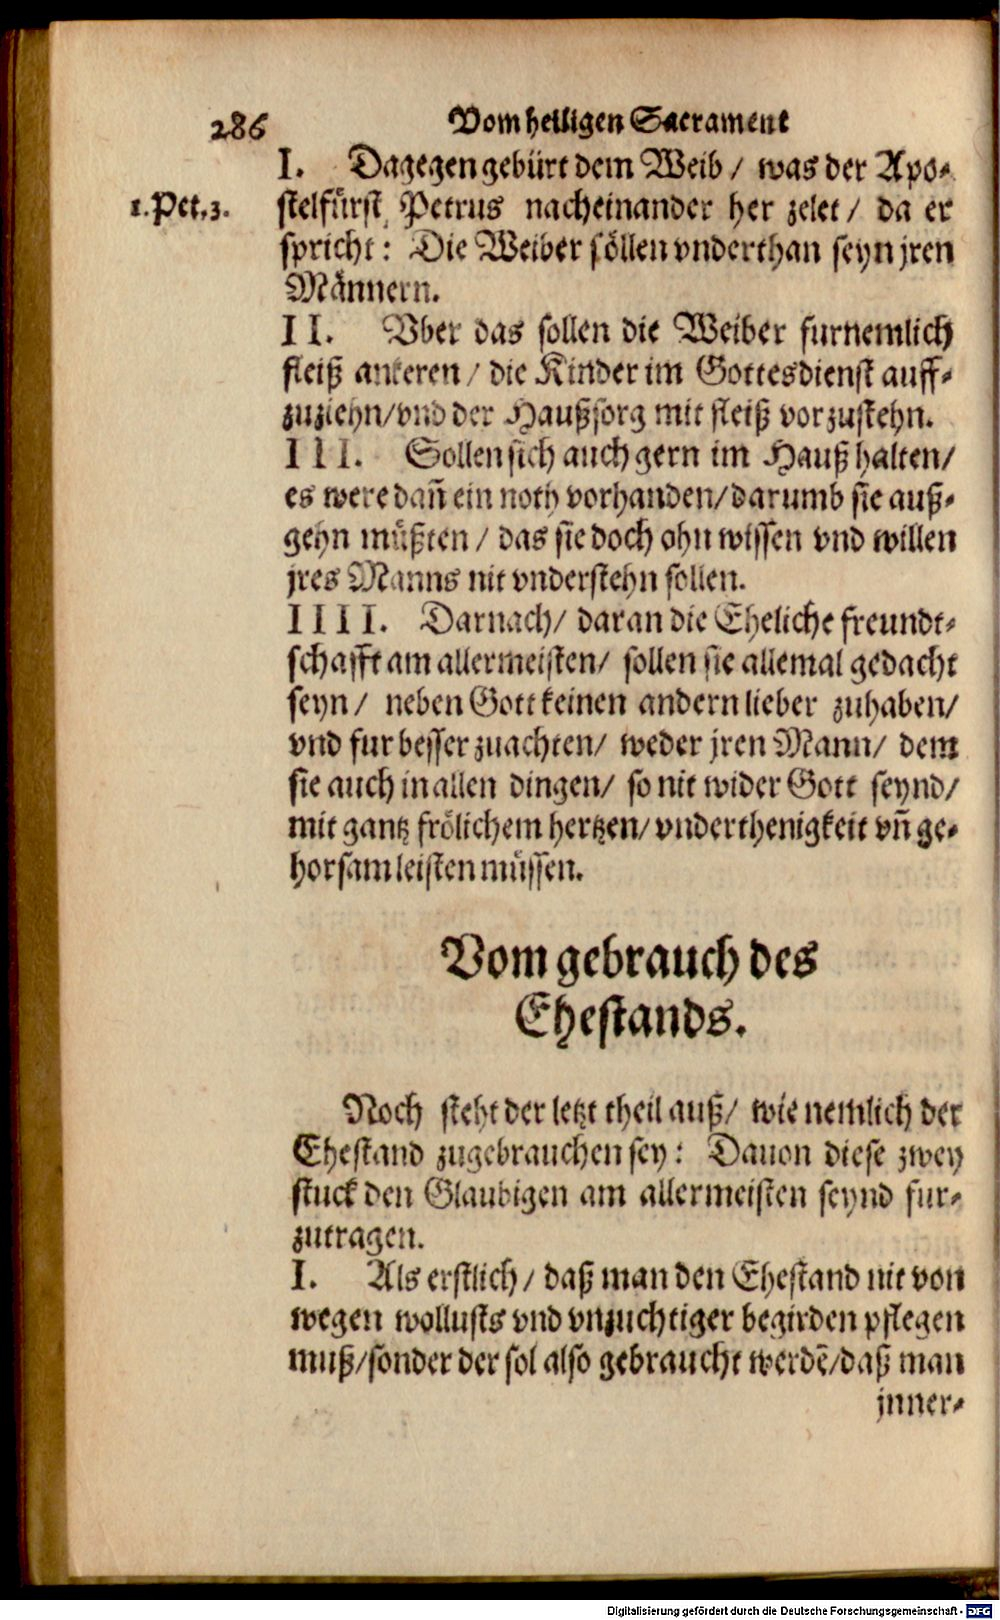 286 Vom heiligen Sacrament
I. Dagegen gebürt dem Weib / was der Apo-
1.Pet.3. stelfürst Petrus nacheinander her zelet / da er
spricht: Die Weiber söllen vnderthan seyn jren
Männern.
II. Vber das sollen die Weiber furnemlich
fleiß ankeren / die Kinder im Gottesdienst auff-
zuziehn/vnd der Haußsorg mit fleiß vorzustehn.
III. Sollen sich auch gern im Hauß halten/
es were dañ ein noth vorhanden/darumb sie auß-
gehn müßten / das sie doch ohn wissen vnd willen
jres Manns nit vnderstehn sollen.
IIII. Darnach/ daran die Eheliche freundt-
schafft am allermeisten/ sollen sie allemal gedacht
seyn/ neben Gott keinen andern lieber zuhaben/
vnd fur besser zuachten/ weder jren Mann/ dem
sie auch in allen dingen/ so nit wider Gott seynd/
mit gantz frölichem hertzen/vnderthenigkeit vñ ge-
horsam leisten müssen.
Vom gebrauch des
Ehestands.
Noch steht der letzt theil auß/ wie nemlich der
Ehestand zugebrauchen sey: Dauon diese zwey
stuck den Glaubigen am allermeisten seynd fur-
zutragen.
I. Als erstlich/ daß man den Ehestand nit von
wegen wollusts vnd vnzuchtiger begirden pflegen
muß/sonder der sol also gebraucht werdē/daß man
jnner-
Digitalisierung gefördert durch die Deutsche Forschungsgemeinschaft - DFG